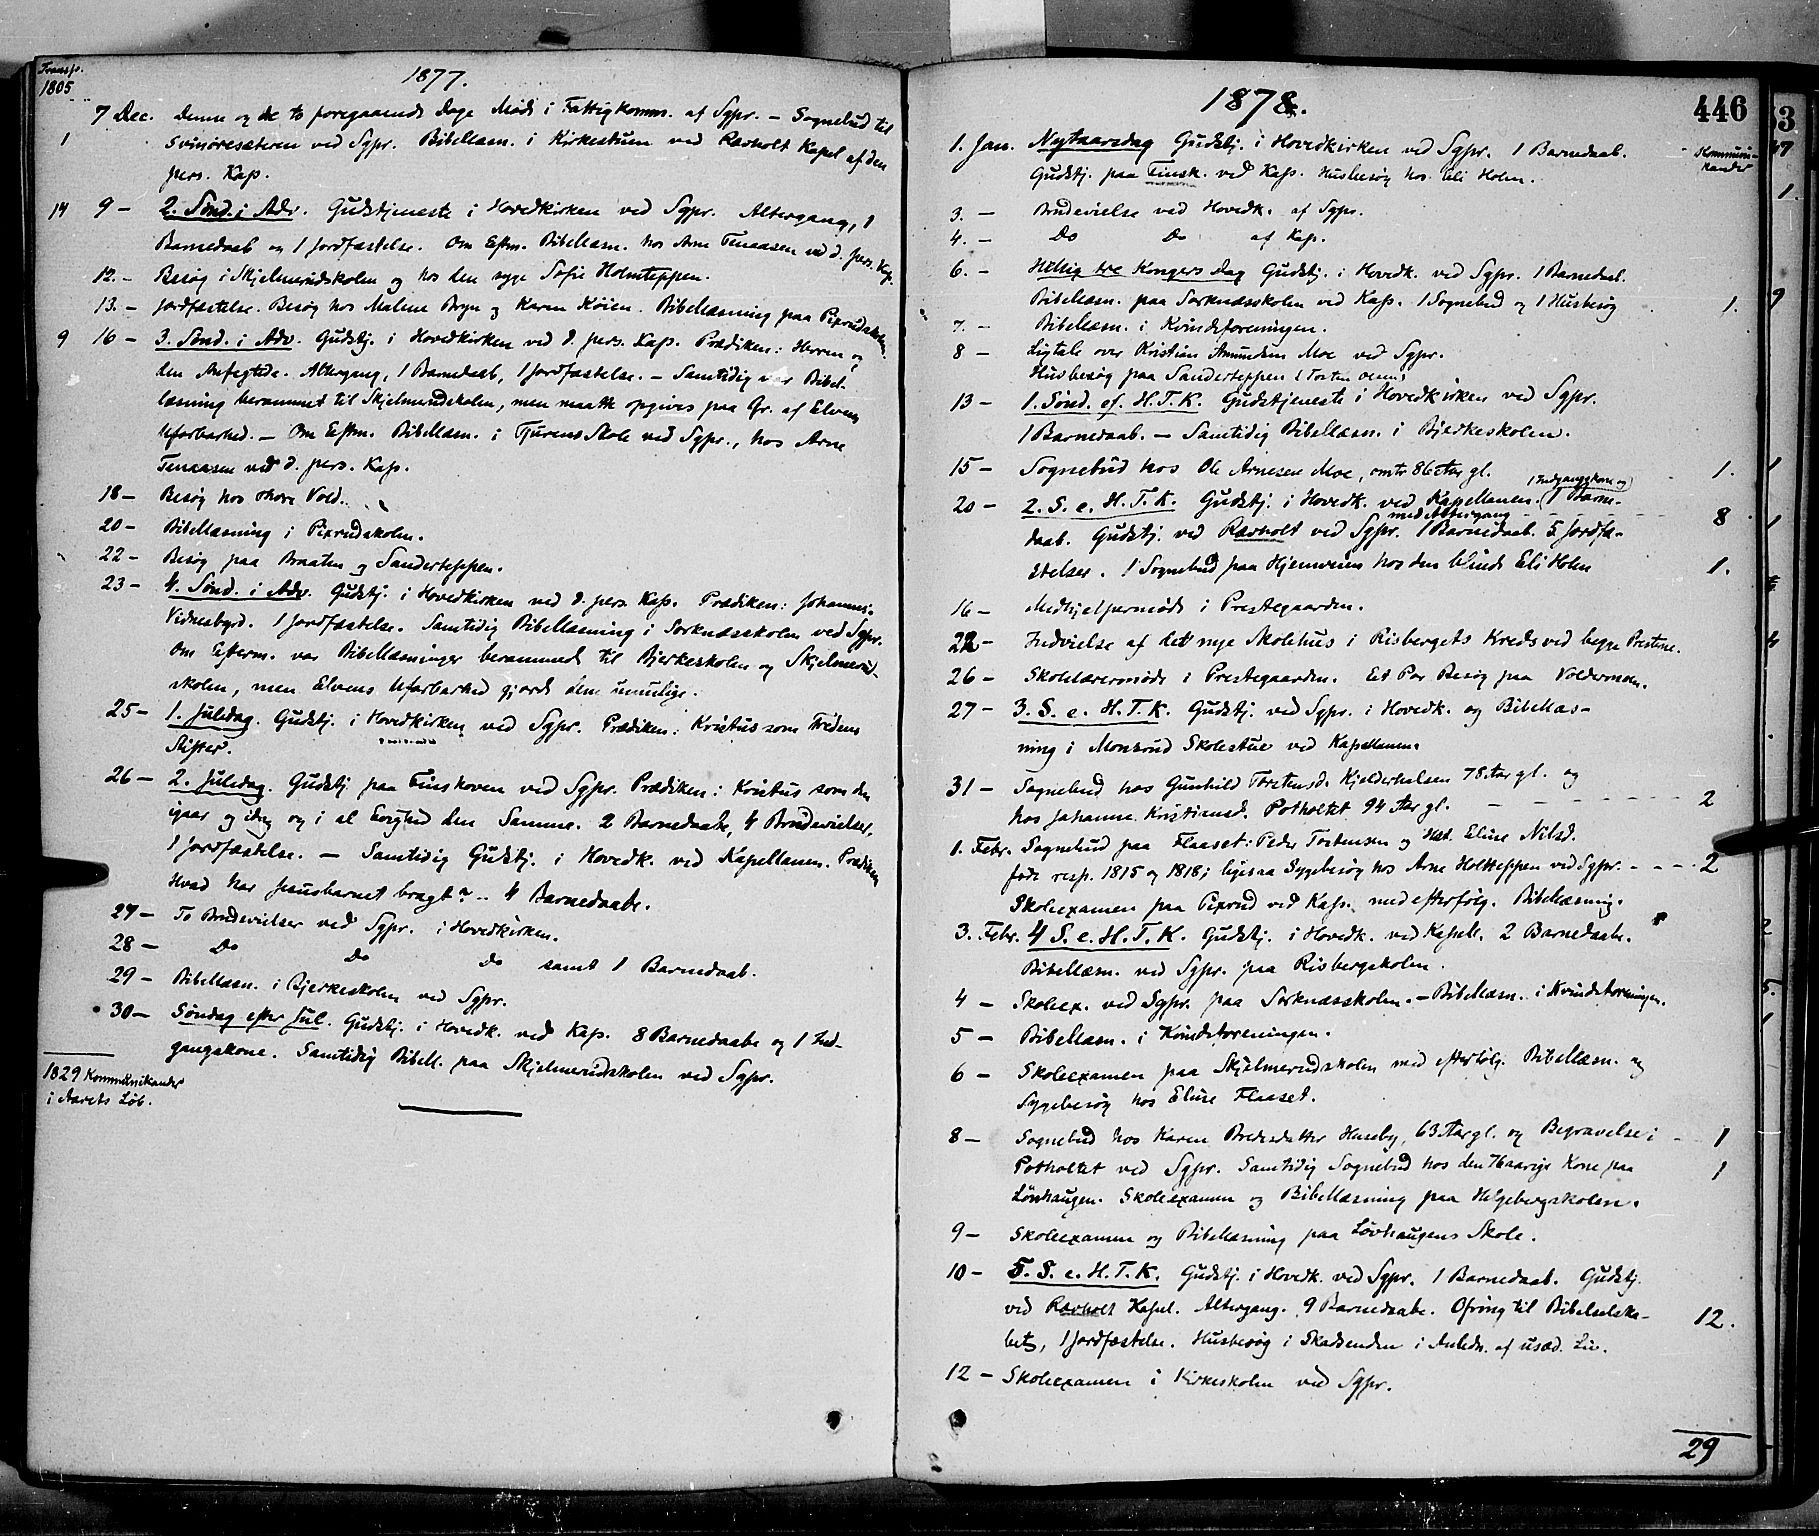 Transp.
1805
1877.
7 Dec. Denne og de to foregaaende Dage Møde i Fattigkomm. af Sgpr. – Sognebud til
1 Svinøresæteren ved Sgpr. Bibellæsn. i Kirkestuen ved Ravholt Kapel af den
pers. Kap.
14 9 – 2. Sønd. i Adv. Gudstjeneste i Hovedkirken ved Sgpr. Altergang, 1
Barnedaab og 1 Jordfæstelse. Om Eftm. Bibellæsn. hos Arne Tenaasen ved d. pers. Kap.
12. – Besøg i Skjelmerudskolen og hos den syge Sofie Holmteppen.
13. – Jordfæstelse. Besøg hos Malene Bryn og Karen Köien. Bibellæsning paa Pixrudskolen.
9 16 – 3. Sønd. i Adv. Gudstj. i Hovedkirken ved d. pers. Kap. Prædiken: Herren og
den Anfegtede. Altergang, 1 Barnedaab, 1 Jordfæstelse. – Samtidig var Bibel-
læsning berammet til Skjelmerudskolen, men maatte opgives paa Gr. af Elvens
Ufarbarhed. – Om Eftm. Bibellæsn. i Tjurens Skole ved Sgpr., hos Arne
Tenaasen ved d. pers. Kap.
18 – Besøg hos Thore Vold.
20 – Bibellæsning i Pixrudskolen.
22 – Besøg paa Braaten og Sanderteppen.
23 – 4. Sønd. i Adv. Gudstj. i Hovedkirken ved d. pers. Kap. Prædiken: Johannes's
Vidnesbyrd. 1 Jordfæstelse. Samtidig Bibellæsning i Sorknæsskolen ved Sgpr.
Om Efterm. var Bibellæsninger berammede til Bjerkeskolen og Skjelmerud-
skolen, men Elvens Ufarbarhed gjorde dem umulige.
25 – 1. Juledag. Gudstj. i Hovedkirken ved Sgpr. Prædiken: Kristus som Fredens
Stifter.
26 – 2. Juledag. Gudstj. paa Finskoven ved Sgpr. Prædiken: Kristus som den
igaar og idag og i al Evighed den Samme. 2 Barnedaabe, 4 Brudevielser,
1 Jordfæstelse. – Samtidig Gudstj. i Hovedk. ved Kapellanen. Prædiken
Hvad har Jesusbarnet bragt? 4 Barnedaabe.
27 – To Brudevielser ved Sgpr. i Hovedkirken.
28 – Do Do Do samt 1 Barnedaab.
29 – Bibellæsn. i Bjerkeskolen ved Sgpr.
30 – Søndag efter Jul. Gudstj. i Hovedk. ved Kap. 8 Barnedaabe og 1 Ind-
gangskone. Samtidig Bibell. paa Skjelmerudskolen ved Sgpr.
1829 Kommunikander
i Aarets Løb.
1878.
446
Kommuni-
kander
1. Jan. Nytaarsdag Gudstj. i Hovedkirken ved Sgpr. 1 Barnedaab.
Gudstj. paa Finsk. ved Kap. Husbesøg hos Eli Holen.
3. – Brudevielse ved Hovedk. af Sgpr.
4. – Do Do af Kap.
6. – Hellig tre Kongers Dag Gudstj. i Hovedk. ved Sgpr. 1 Barnedaab.
Bibellæsn. paa Sorknæsskolen ved Kap. 1 Sognebud og 1 Husbesøg 1.
7. – Bibellæsn. i Kvindeforeningen.
8 – Ligtale over Kristian Amundsen Moe ved Sgpr.
Husbesøg paa Sanderteppen
13 – 1. Sønd. ef. H. T. K. Gudstjeneste i Hovedkirken ved Sgpr.
1 Barnedaab. – Samtidig Bibellæsn. i Bjerkeskolen.
15 – Sognebud hos Ole Arnesen Moe, omtr 86 Aar gl. 1.
1 Indgangskone og
20 – 2. S. e. H. T. K. Gudstj. i Hovedk. ved Kapellanen. (1 Barne-
med Altergang
daab. Gudstj. ved Ravholt ved Sgpr. 1 Barnedaab. 5 Jordfæ- 8
stelser. 1 Sognebud paa Hjemveien hos den blinde Eli Holen 1.
16 – Medhjelpermøde i Prestegaarden.
22 – Indvielse af det nye Skolehus i Risbergets Kreds ved begge Prestene.
26 – Skolelærermøde i Prestegaarden. Et Par Besøg paa Voldermoen.
27 – 3. S. e. H. T. K. Gudstj. ved Sgpr. i Hovedk. og Bibellæs-
ning i Monsrud Skolestue ved Kapellanen.
31 – Sognebud hos Gunhild Torstensd. Kjelderhelsen 78 Aar gl. og
hos Johanne Kristiansd. Potholtet 94 Aar gl. 2
1. Febr. Sognebud paa Flaaset: Peder Torstensen og Hst. Eline Nilsd.
føde resp. 1815 og 1818; ligesaa Sygebesøg hos Arne Holtteppen ved Sgpr. – – – 2
Skoleexamen paa Pixrud ved Kap. med efterfølg. Bibellæsning.
3. Febr. 4 S. e. H. T. K. Gudstj. i Hovedk. ved Kapell. 2 Barnedaabe.
Bibellæsn. ved Sgpr. paa Risbergskolen.
4 – Skoleex. ved Sgpr. paa Sorknæsskolen. – Bibellæsn. i Kvindeforeningen.
5 – Bibellæsn. i Kvindeforeningen.
6 – Skoleexamen paa Skjelmerudskolen med efterfølg. Bibellæsn. og
Sygebesøg hos Eline Flaaset.
8 – Sognebud hos Karen Bredesdatter Huseby, 63 Aar gl. og Begravelse i – 1
Potholtet ved Sgpr. Samtidig Sognebud hos den 76aarige Kone paa 1
Løvhaugen. Skoleexamen og Bibellæsning paa Helgebergskolen.
9 – Skoleexamen og Bibellæsning paa Løvhaugens Skole.
10 – 5. S. e. H. T. K. Gudstj. i Hovedk. ved Sgpr. 1 Barnedaab. Gudstj.
ved Ravholt Kapel. Altergang. 9 Barnedaabe. Ofring til Bibelselska- 12.
bet, 1 Jordfæstelse. Husbesøg i Skadsenden i Anledn. af usæd. Liv.
12 – Skoleexamen i Kirkeskolen ved Sgpr.
29